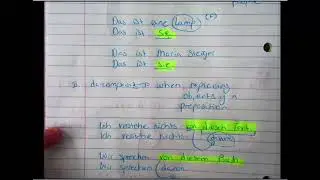 Das ist eine Lamp (f)
Das ist Sie
Das ist Maria Steiger
Das ist Sie
when replacing
objects of a
preposition
Ich verstehe nichts von diesem Text
Ich verstehe nichts davon
Wir sprechen von diesem Buch
Wir sprechen davon